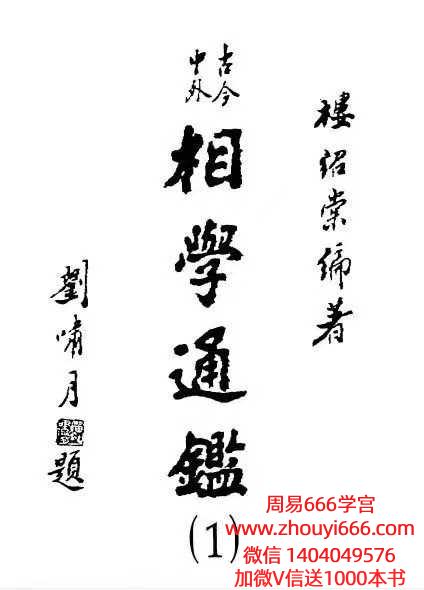 樓紹棠編著
古今
中外
相學通鑑
(1)
劉嘯月
題
周易666学宫
www.zhouyi666.com
微信 1404049576
加微V信送1000本书